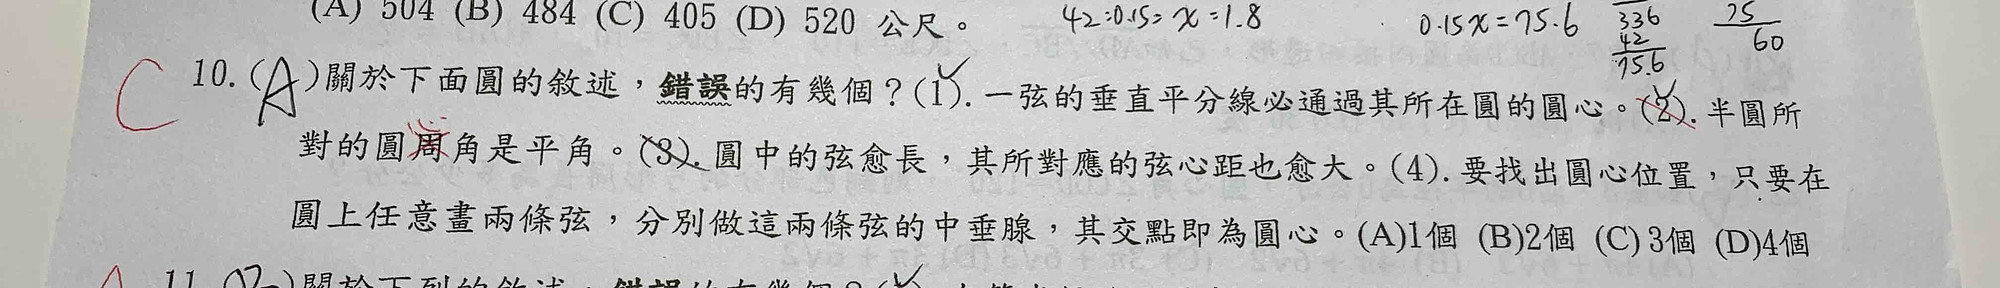 (A) 504 (B) 484 (C) 405 (D) 520 公尺。 42:0.15=x=1.8 0.15x=75.6 336 75
42 60
75.6
C 10. (A)關於下面圓的敘述，錯誤的有幾個？(1). 一弦的垂直平分線必通過其所在圓的圓心。(2). 半圓所
對的圓周角是平角。(3). 圓中的弦愈長，其所對應的弦心距也愈大。(4). 要找出圓心位置，只要在
圓上任意畫兩條弦，分別做這兩條弦的中垂腺，其交點即為圓心。(A)1個 (B)2個 (C) 3個 (D)4個
11. 關於下列的敘述，錯誤的有幾個？